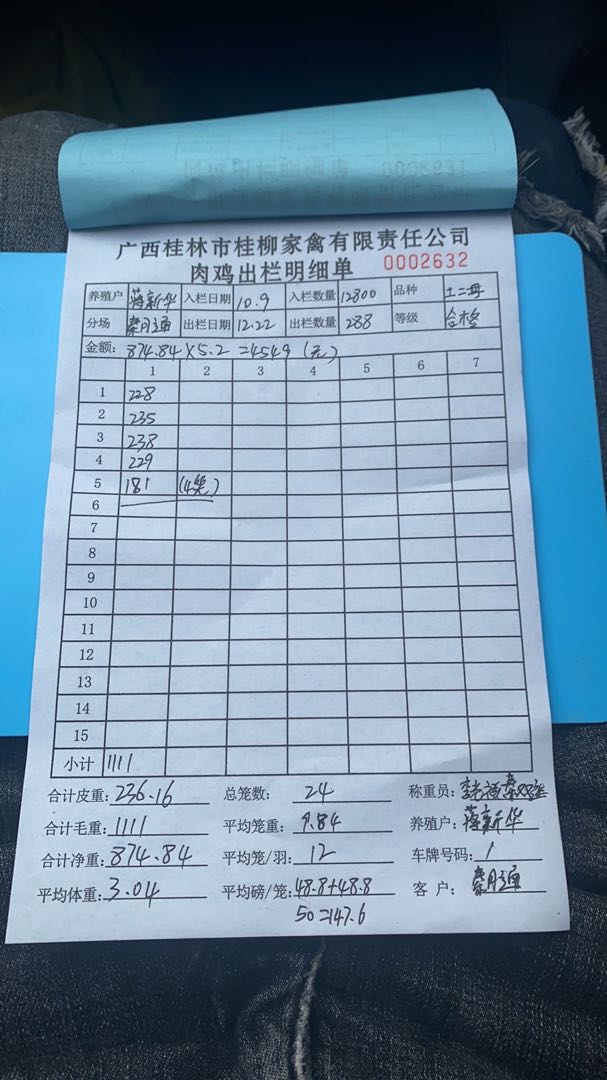 广西桂林市桂柳家禽有限责任公司
肉鸡出栏明细单 0002632
养殖户 蒋新华 入栏日期 10.9 入栏数量 12800 品种 土二母
分场 秦月通 出栏日期 12.22 出栏数量 288 等级 合格
金额: 874.84×5.2=4549(元)
1 2 3 4 5 6 7
1 228
2 235
3 238
4 229
5 181 (4笼)
6
7
8
9
10
11
12
13
14
15
小计 1111
合计皮重: 236.16 总笼数: 24 称重员:
合计毛重: 1111 平均笼重: 9.84 养殖户: 蒋新华
合计净重: 874.84 平均笼/羽: 12 车牌号码: 1
平均体重: 3.04 平均磅/笼: 48.8+48.8 客户: 秦月通
50=147.6